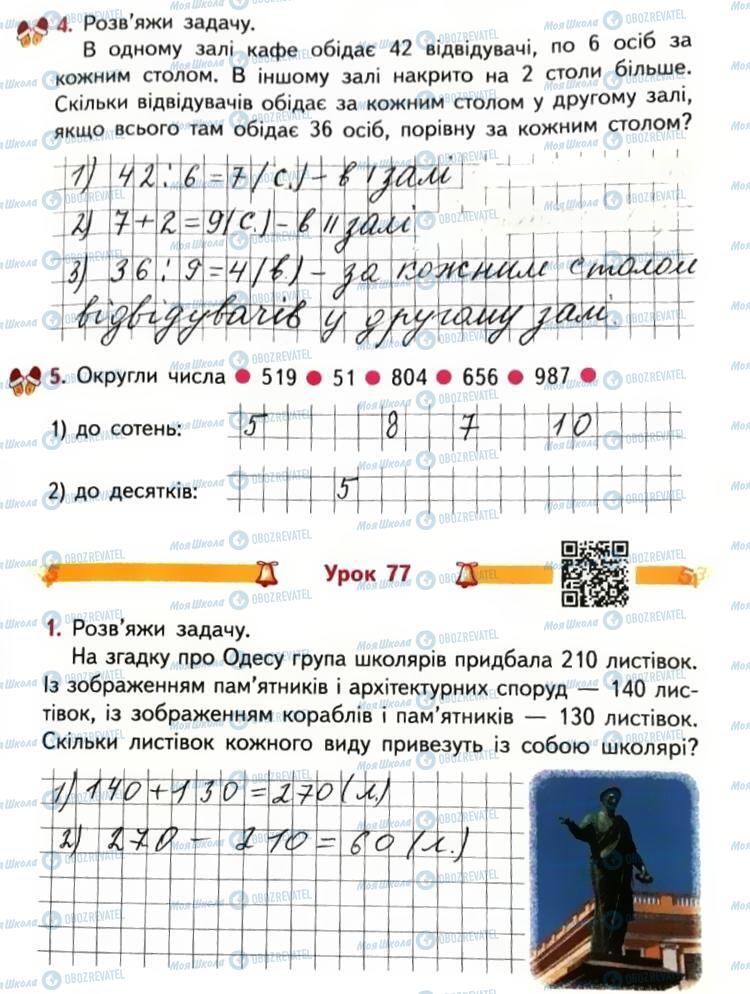 4. Розв'яжи задачу.
В одному залі кафе обідає 42 відвідувачі, по 6 осіб за
кожним столом. В іншому залі накрито на 2 столи більше.
Скільки відвідувачів обідає за кожним столом у другому залі,
якщо всього там обідає 36 осіб, порівну за кожним столом?
1) 42 : 6 = 7 (с.) – в I залі
2) 7 + 2 = 9 (с.) – в II залі
3) 36 : 9 = 4 (в.) – за кожним столом
відвідувачів у другому залі.
5. Округли числа ● 519 ● 51 ● 804 ● 656 ● 987 ●
1) до сотень: 5 8 7 10
2) до десятків: 5
Урок 77
1. Розв'яжи задачу.
На згадку про Одесу група школярів придбала 210 листівок.
Із зображенням пам'ятників і архітектурних споруд — 140 лис-
тівок, із зображенням кораблів і пам'ятників — 130 листівок.
Скільки листівок кожного виду привезуть із собою школярі?
1) 140 + 130 = 270 (л.)
2) 270 – 210 = 60 (л.)
Моя Школа
OBOZREVATEL